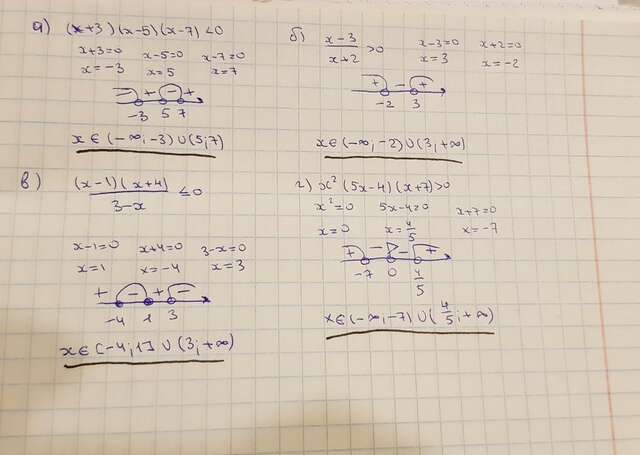 а) (x+3)(x-5)(x-7)<0
x+3=0 x-5=0 x-7=0
x=-3 x=5 x=7
- + - +
-3 5 7
x∈(-∞;-3)∪(5;7)
б) x-3/x+2 >0 x-3=0 x+2=0
x=3 x=-2
+ - +
-2 3
x∈(-∞;-2)∪(3;+∞)
в) (x-1)(x+4)/3-x ≤0
x-1=0 x+4=0 3-x=0
x=1 x=-4 x=3
+ - + -
-4 1 3
x∈[-4;1]∪(3;+∞)
г) x²(5x-4)(x+7)>0
x²=0 5x-4=0 x+7=0
x=0 x=4/5 x=-7
+ - - +
-7 0 4/5
x∈(-∞;-7)∪(4/5;+∞)